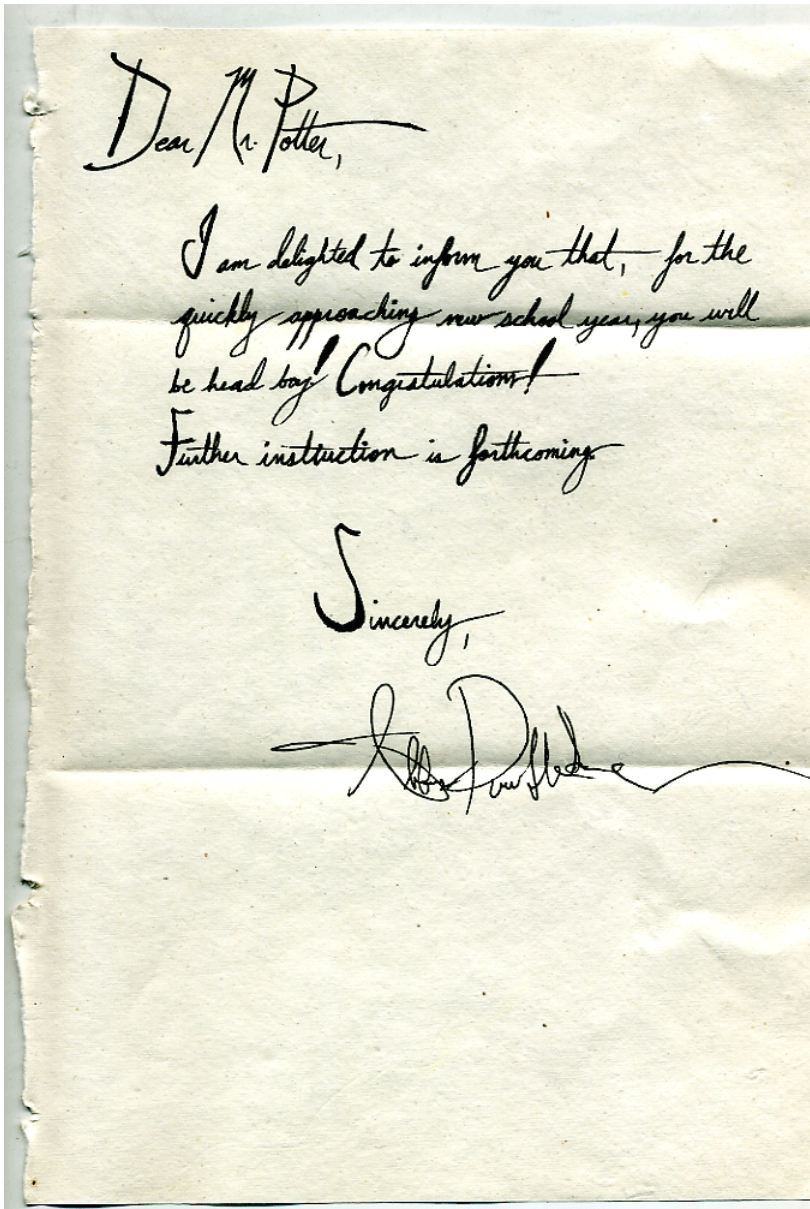 Dear Mr. Potter,
I am delighted to inform you that, for the
quickly approaching new school year, you will
be head boy! Congratulations!
Further instruction is forthcoming.
Sincerely,